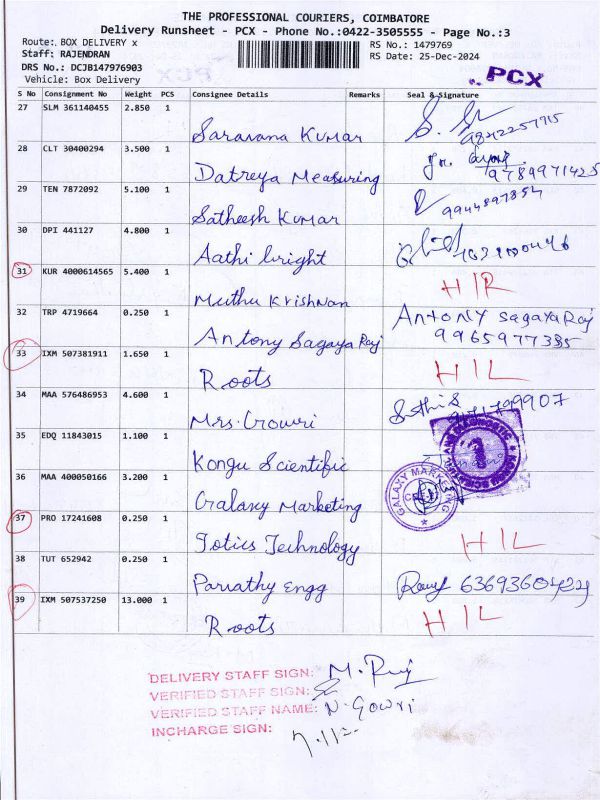 THE PROFESSIONAL COURIERS, COIMBATORE
Delivery Runsheet - PCX - Phone No.:0422-3505555 - Page No.:3
Route:. BOX DELIVERY x
RS No.: 1479769
Staff: RAJENDRAN
RS Date: 25-Dec-2024
DRS No.: DCJB147976903
Vehicle: Box Delivery
PCX
S No Consignment No Weight PCS Consignee Details Remarks Seal & Signature
27 SLM 361140455 2.850 1
Saravana Kumar
28 CLT 30400294 3.500 1
Datreya Measuring 9789971425
29 TEN 7872092 5.100 1
Satheesh Kumar
30 DPI 441127 4.800 1
Aathi bright
31 KUR 4000614565 5.400 1
Muthu Krishnan
32 TRP 4719664 0.250 1 Antony Sagaya Raj
Antony Sagaya Raj 9965977385
33 IXM 507381911 1.650 1
Roots HIL
34 MAA 576486953 4.600 1
Mrs. Gowri
35 EDQ 11843015 1.100 1
Kongu Scientific
36 MAA 400050166 3.200 1
Galaxy Marketing GALAXY MARKETING
37 PRO 17241608 0.250 1
Totics Technology HIL
38 TUT 652942 0.250 1
Parvathy Engg
39 IXM 507537250 13.000 1
Roots HIL
DELIVERY STAFF SIGN: M. Raj
VERIFIED STAFF SIGN:
VERIFIED STAFF NAME: N. Gowri
INCHARGE SIGN: